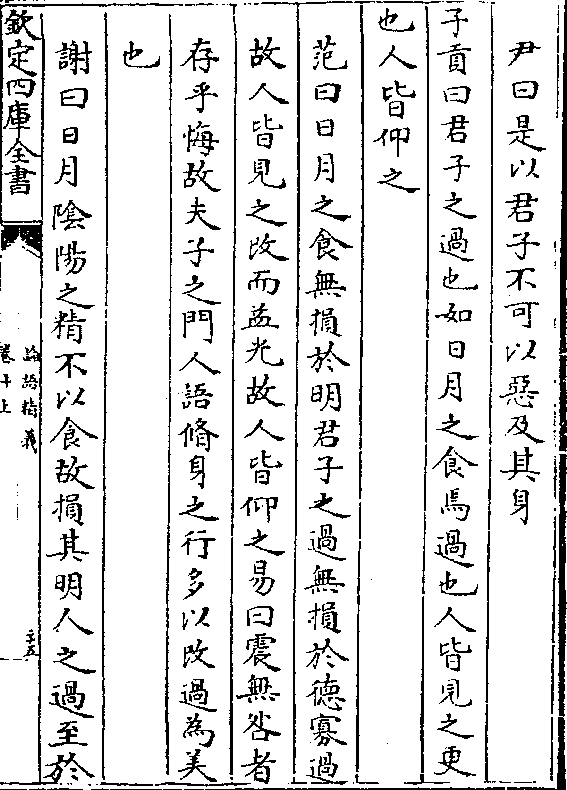 尹曰是以君子不可以惡及其身
子貢曰君子之過也如日月之食焉過也人皆見之更
也人皆仰之
范曰日月之食無損於明君子之過無損於德寡過
故人皆見之改而益光故人皆仰之易曰震無咎者
存乎悔故夫子之門人語脩身之行多以改過為美
也
謝曰日月陰陽之精不以食故損其明人之過至於
欽定四庫全書
論語精義
卷十上
三五